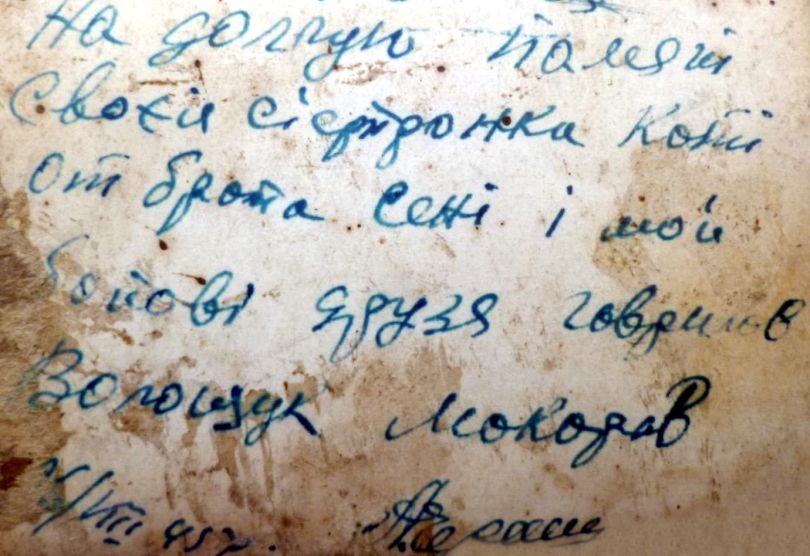 На долгую памяті
своєй сієстронка Коті
от брота Сені і мой
бойові друзя говрилов
Волощук Мокоров
/VIII 45г.